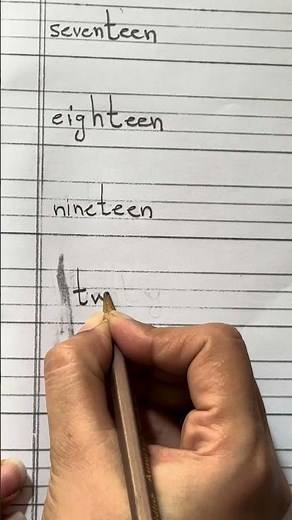 seventeen
eighteen
nineteen
tw